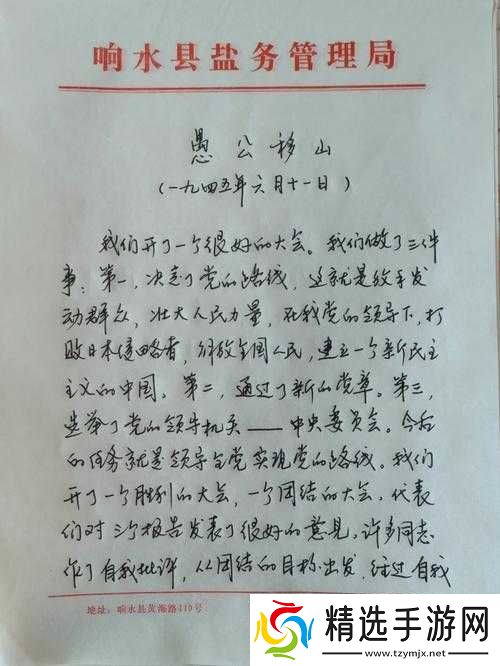 响水县盐务管理局
愚公移山
(一九四五年六月十一日)
我们开了一个很好的大会。我们做了三件
事:第一,决定了党的路线,这就是放手发
动群众,壮大人民力量,在我党的领导下,打
败日本侵略者,解放全国人民,建立一个新民主
主义的中国。第二,通过了新的党章。第三,
选举了党的领导机关——中央委员会。今后
的任务就是领导全党实现党的路线。我们
开了一个胜利的大会,一个团结的大会。代表
们对三个报告发表了很好的意见。许多同志
作了自我批评,从团结的目标出发,经过自我
地址:响水县黄海路410号
精选手游网
www.tzymjx.net